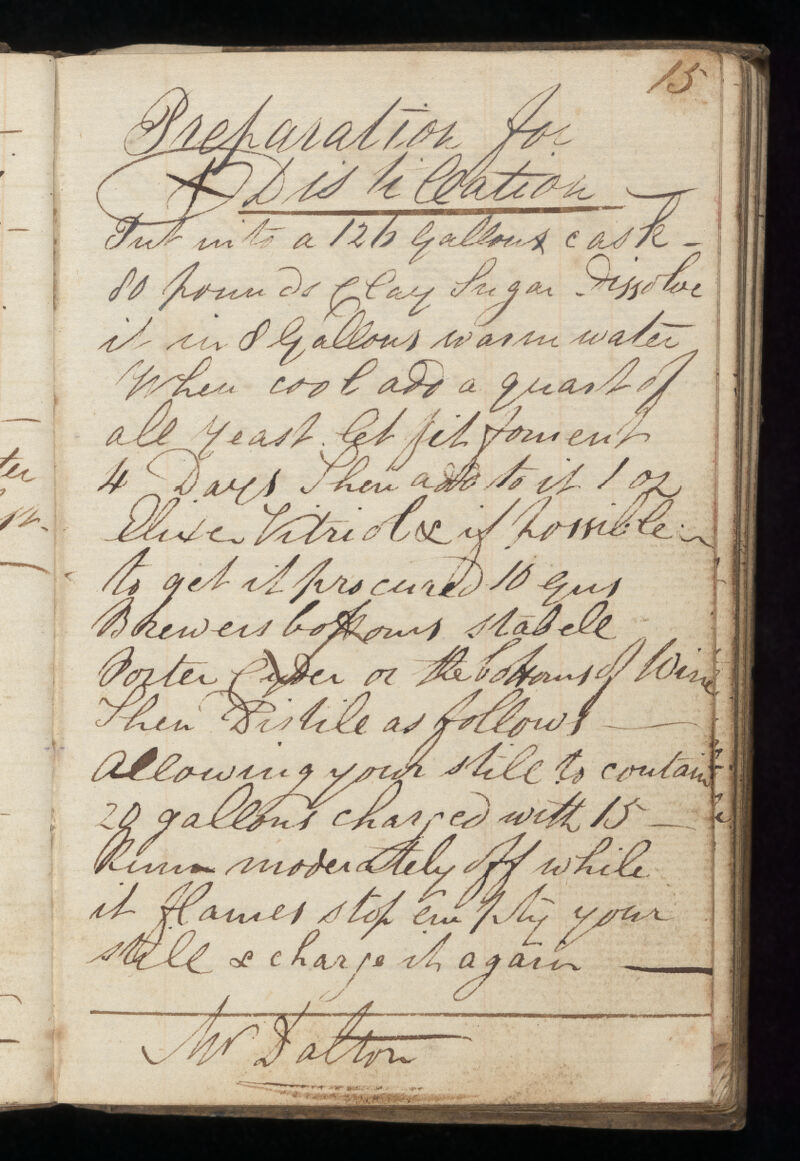 15
Preparation for
Distillation
Put into a 126 Gallons cask -
80 pounds Clay Sugar Dissolve
it in 8 Gallons warm water
When cool add a quart of
all yeast let it foment
4 Days Then add to it 1 oz
Elixer Vitriol & if possible
to get it procured 10 Gns
Brewers bottoms stabell
Porter Cyder or the bottoms of Wine
Then Distile as follows
allowing your stile to contain
20 gallons charged with 15 -
Runn moderately off while
it flames stop empty your
still & charge it again
Mr Dalton